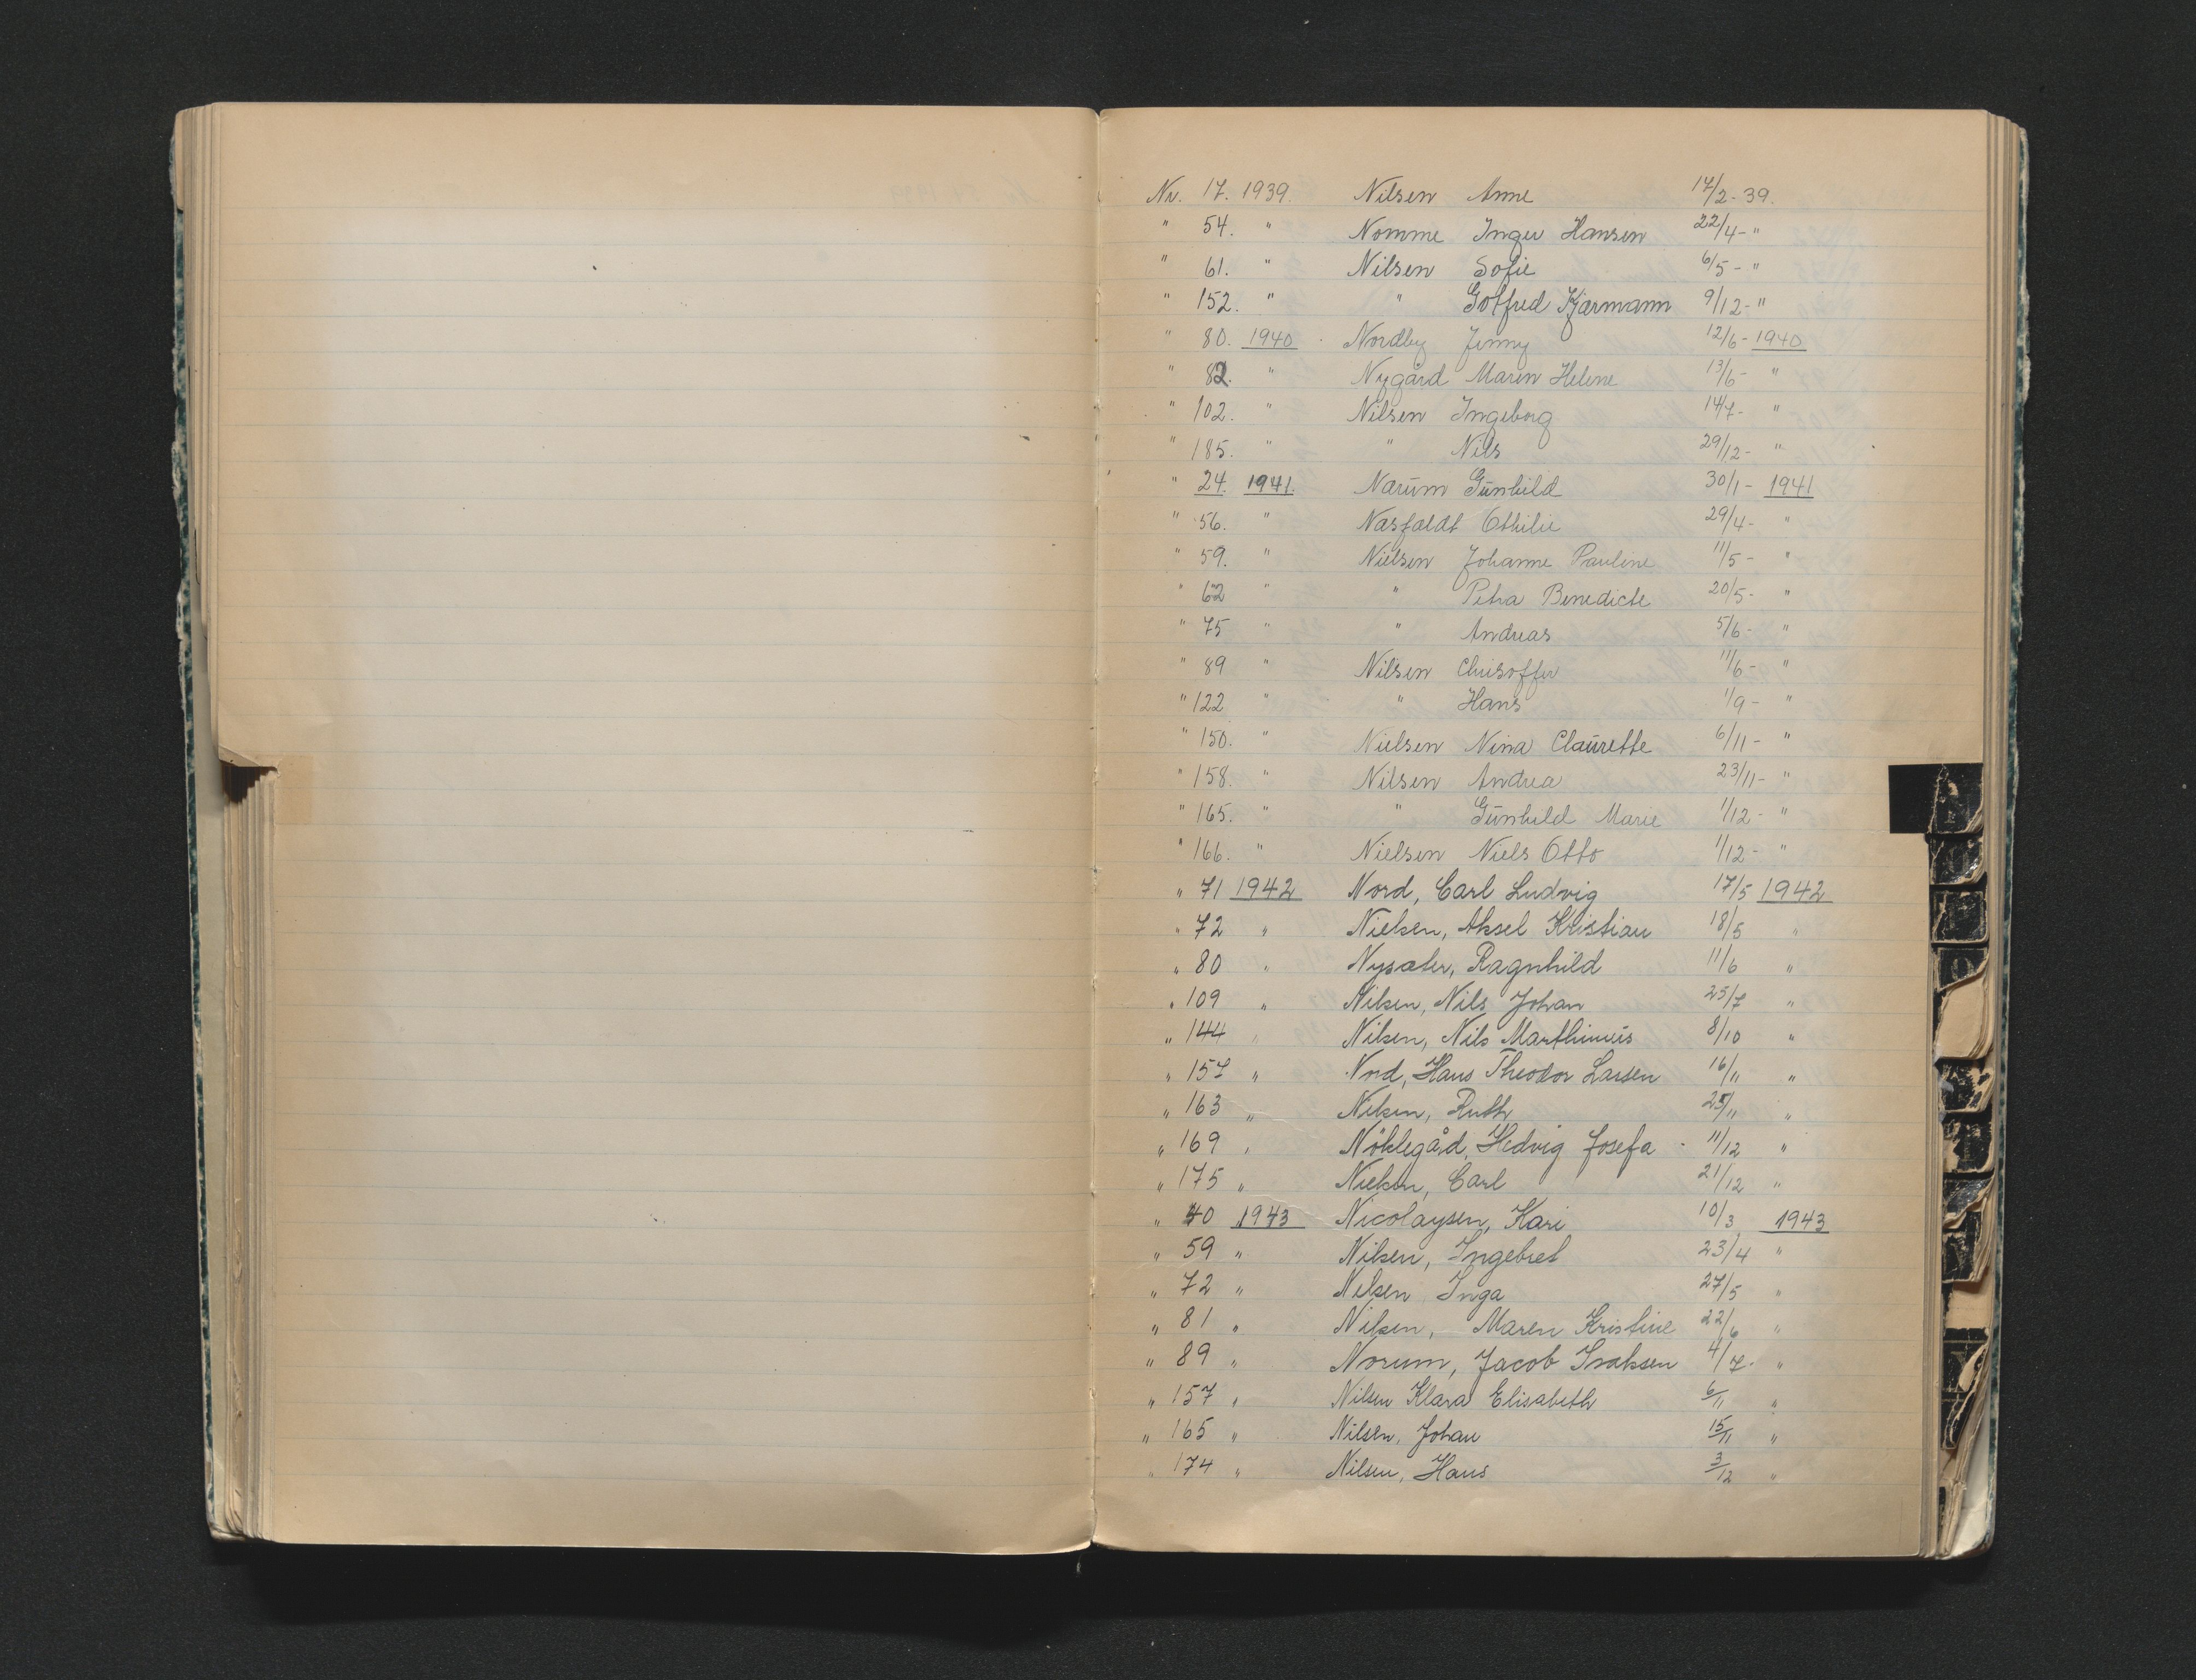 Nr. 17. 1939. Nilsen Anne 17/2-39.
" 54. " Nomme Inger Hansen 22/4- "
" 61. " Nilsen Sofie 6/5- "
" 152. " " Gotfred Kjærmann 9/12- "
" 80. 1940 Nordby Jenny 12/6-1940
" 82. " Nygård Maren Helene 13/6- "
" 102. " Nilsen Ingeborg 14/7- "
" 185. " " Nils 29/12- "
" 24. 1941. Narum Gunhild 30/1-1941
" 56. " Nasfaldt Othilie 29/4- "
" 59. " Nielsen Johanne Pauline 11/5- "
" 62 " " Petra Benedicte 20/5- "
" 75 " " Andreas 5/6- "
" 89 " Nilsen Chrisoffer 11/6- "
" 122 " " Hans 1/9- "
" 150. " Nielsen Nina Claurette 6/11- "
" 158. " Nilsen Andrea 23/11- "
" 165. " " Gunhild Marie 1/12- "
" 166. " Nielsen Niels Otto 1/12- "
" 71 1942 Nord, Carl Ludvig 17/5 1942
" 72 " Nielsen, Aksel Kristian 18/5 "
" 80 " Nysæter, Ragnhild 11/6 "
" 109 " Nilsen, Nils Johan 25/7 "
" 144 " Nilsen, Nils Marthinius 8/10 "
" 157 " Nord, Hans Theodor Larsen 16/11 "
" 163 " Nilsen, Ruth 25/11 "
" 169 " Nöklegård, Hedvig Josefa - 11/12 "
" 175 " Nielsen, Carl 21/12 "
" 40 1943 Nicolaysen, Kari 10/3 1943
" 59 " Nilsen, Ingebret 23/4 "
" 72 " Nilsen Inga 27/5 "
" 81 " Nilsen, Maren Kristine 22/6 "
" 89 " Norum, Jacob Isaksen 4/7- "
" 157 " Nilsen Klara Elisabeth 6/11 "
" 165 " Nilsen, Johan 15/11 "
" 174 " Nilsen, Hans 3/12 "